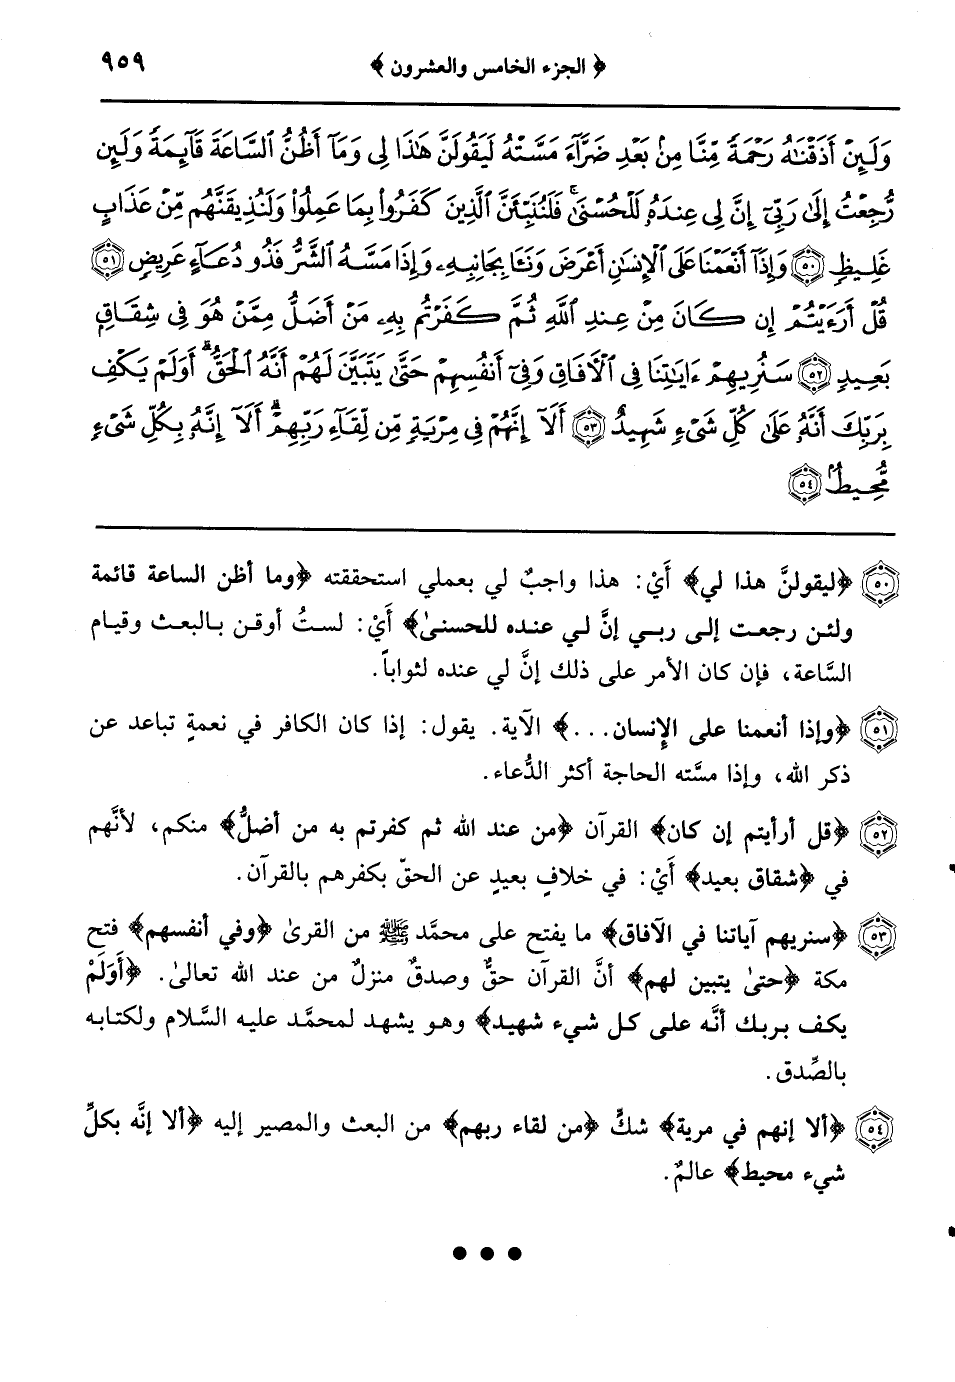 ﴿ الجزء الخامس والعشرون ﴾ ٩٥٩
وَلَئِنْ أَذَقْنَٰهُ رَحْمَةً مِّنَّا مِنۢ بَعْدِ ضَرَّآءَ مَسَّتْهُ لَيَقُولَنَّ هَٰذَا لِى وَمَآ أَظُنُّ ٱلسَّاعَةَ قَآئِمَةً وَلَئِن
رُّجِعْتُ إِلَىٰ رَبِّىٓ إِنَّ لِى عِندَهُۥ لَلْحُسْنَىٰ ۚ فَلَنُنَبِّئَنَّ ٱلَّذِينَ كَفَرُوا۟ بِمَا عَمِلُوا۟ وَلَنُذِيقَنَّهُم مِّنْ عَذَابٍ
غَلِيظٍ ٥٠ وَإِذَآ أَنْعَمْنَا عَلَى ٱلْإِنسَٰنِ أَعْرَضَ وَنَـَٔا بِجَانِبِهِۦ وَإِذَا مَسَّهُ ٱلشَّرُّ فَذُو دُعَآءٍ عَرِيضٍ ٥١
قُلْ أَرَءَيْتُمْ إِن كَانَ مِنْ عِندِ ٱللَّهِ ثُمَّ كَفَرْتُم بِهِۦ مَنْ أَضَلُّ مِمَّنْ هُوَ فِى شِقَاقٍۭ
بَعِيدٍ ٥٢ سَنُرِيهِمْ ءَايَٰتِنَا فِى ٱلْءَافَاقِ وَفِىٓ أَنفُسِهِمْ حَتَّىٰ يَتَبَيَّنَ لَهُمْ أَنَّهُ ٱلْحَقُّ ۗ أَوَلَمْ يَكْفِ
بِرَبِّكَ أَنَّهُۥ عَلَىٰ كُلِّ شَىْءٍ شَهِيدٌ ٥٣ أَلَآ إِنَّهُمْ فِى مِرْيَةٍ مِّن لِّقَآءِ رَبِّهِمْ ۗ أَلَآ إِنَّهُۥ بِكُلِّ شَىْءٍ
مُّحِيطٌۢ ٥٤
٥٠ ﴿ليقولنَّ هذا لي﴾ أَيْ: هذا واجبٌ لي بعملي استحققته ﴿وما أظن الساعة قائمة
ولئن رجعت إلى ربي إنَّ لي عنده للحسنىٰ﴾ أَيْ: لستُ أوقن بالبعث وقيام
السَّاعة، فإن كان الأمر على ذلك إنَّ لي عنده لثواباً.
٥١ ﴿وإذا أنعمنا على الإنسان...﴾ الآية. يقول: إذا كان الكافر في نعمةٍ تباعد عن
ذكر الله، وإذا مسَّته الحاجة أكثر الدُّعاء.
٥٢ ﴿قل أرأيتم إن كان﴾ القرآن ﴿من عند الله ثم كفرتم به من أضلُّ﴾ منكم، لأنَّهم
في ﴿شقاق بعيد﴾ أَيْ: في خلافٍ بعيدٍ عن الحقّ بكفرهم بالقرآن.
٥٣ ﴿سنريهم آياتنا في الآفاق﴾ ما يفتح على محمَّد ﷺ من القرىٰ ﴿وفي أنفسهم﴾ فتح
مكة ﴿حتىٰ يتبين لهم﴾ أنَّ القرآن حقٌّ وصدقٌ منزلٌ من عند الله تعالىٰ. ﴿أَوَلَمْ
يكف بربك أنَّه على كل شيء شهيد﴾ وهو يشهد لمحمَّد عليه السَّلام ولكتابه
بالصِّدق.
٥٤ ﴿ألا إنهم في مرية﴾ شكٍّ ﴿من لقاء ربهم﴾ من البعث والمصير إليه ﴿ألا إنَّه بكلِّ
شيء محيط﴾ عالمٌ.